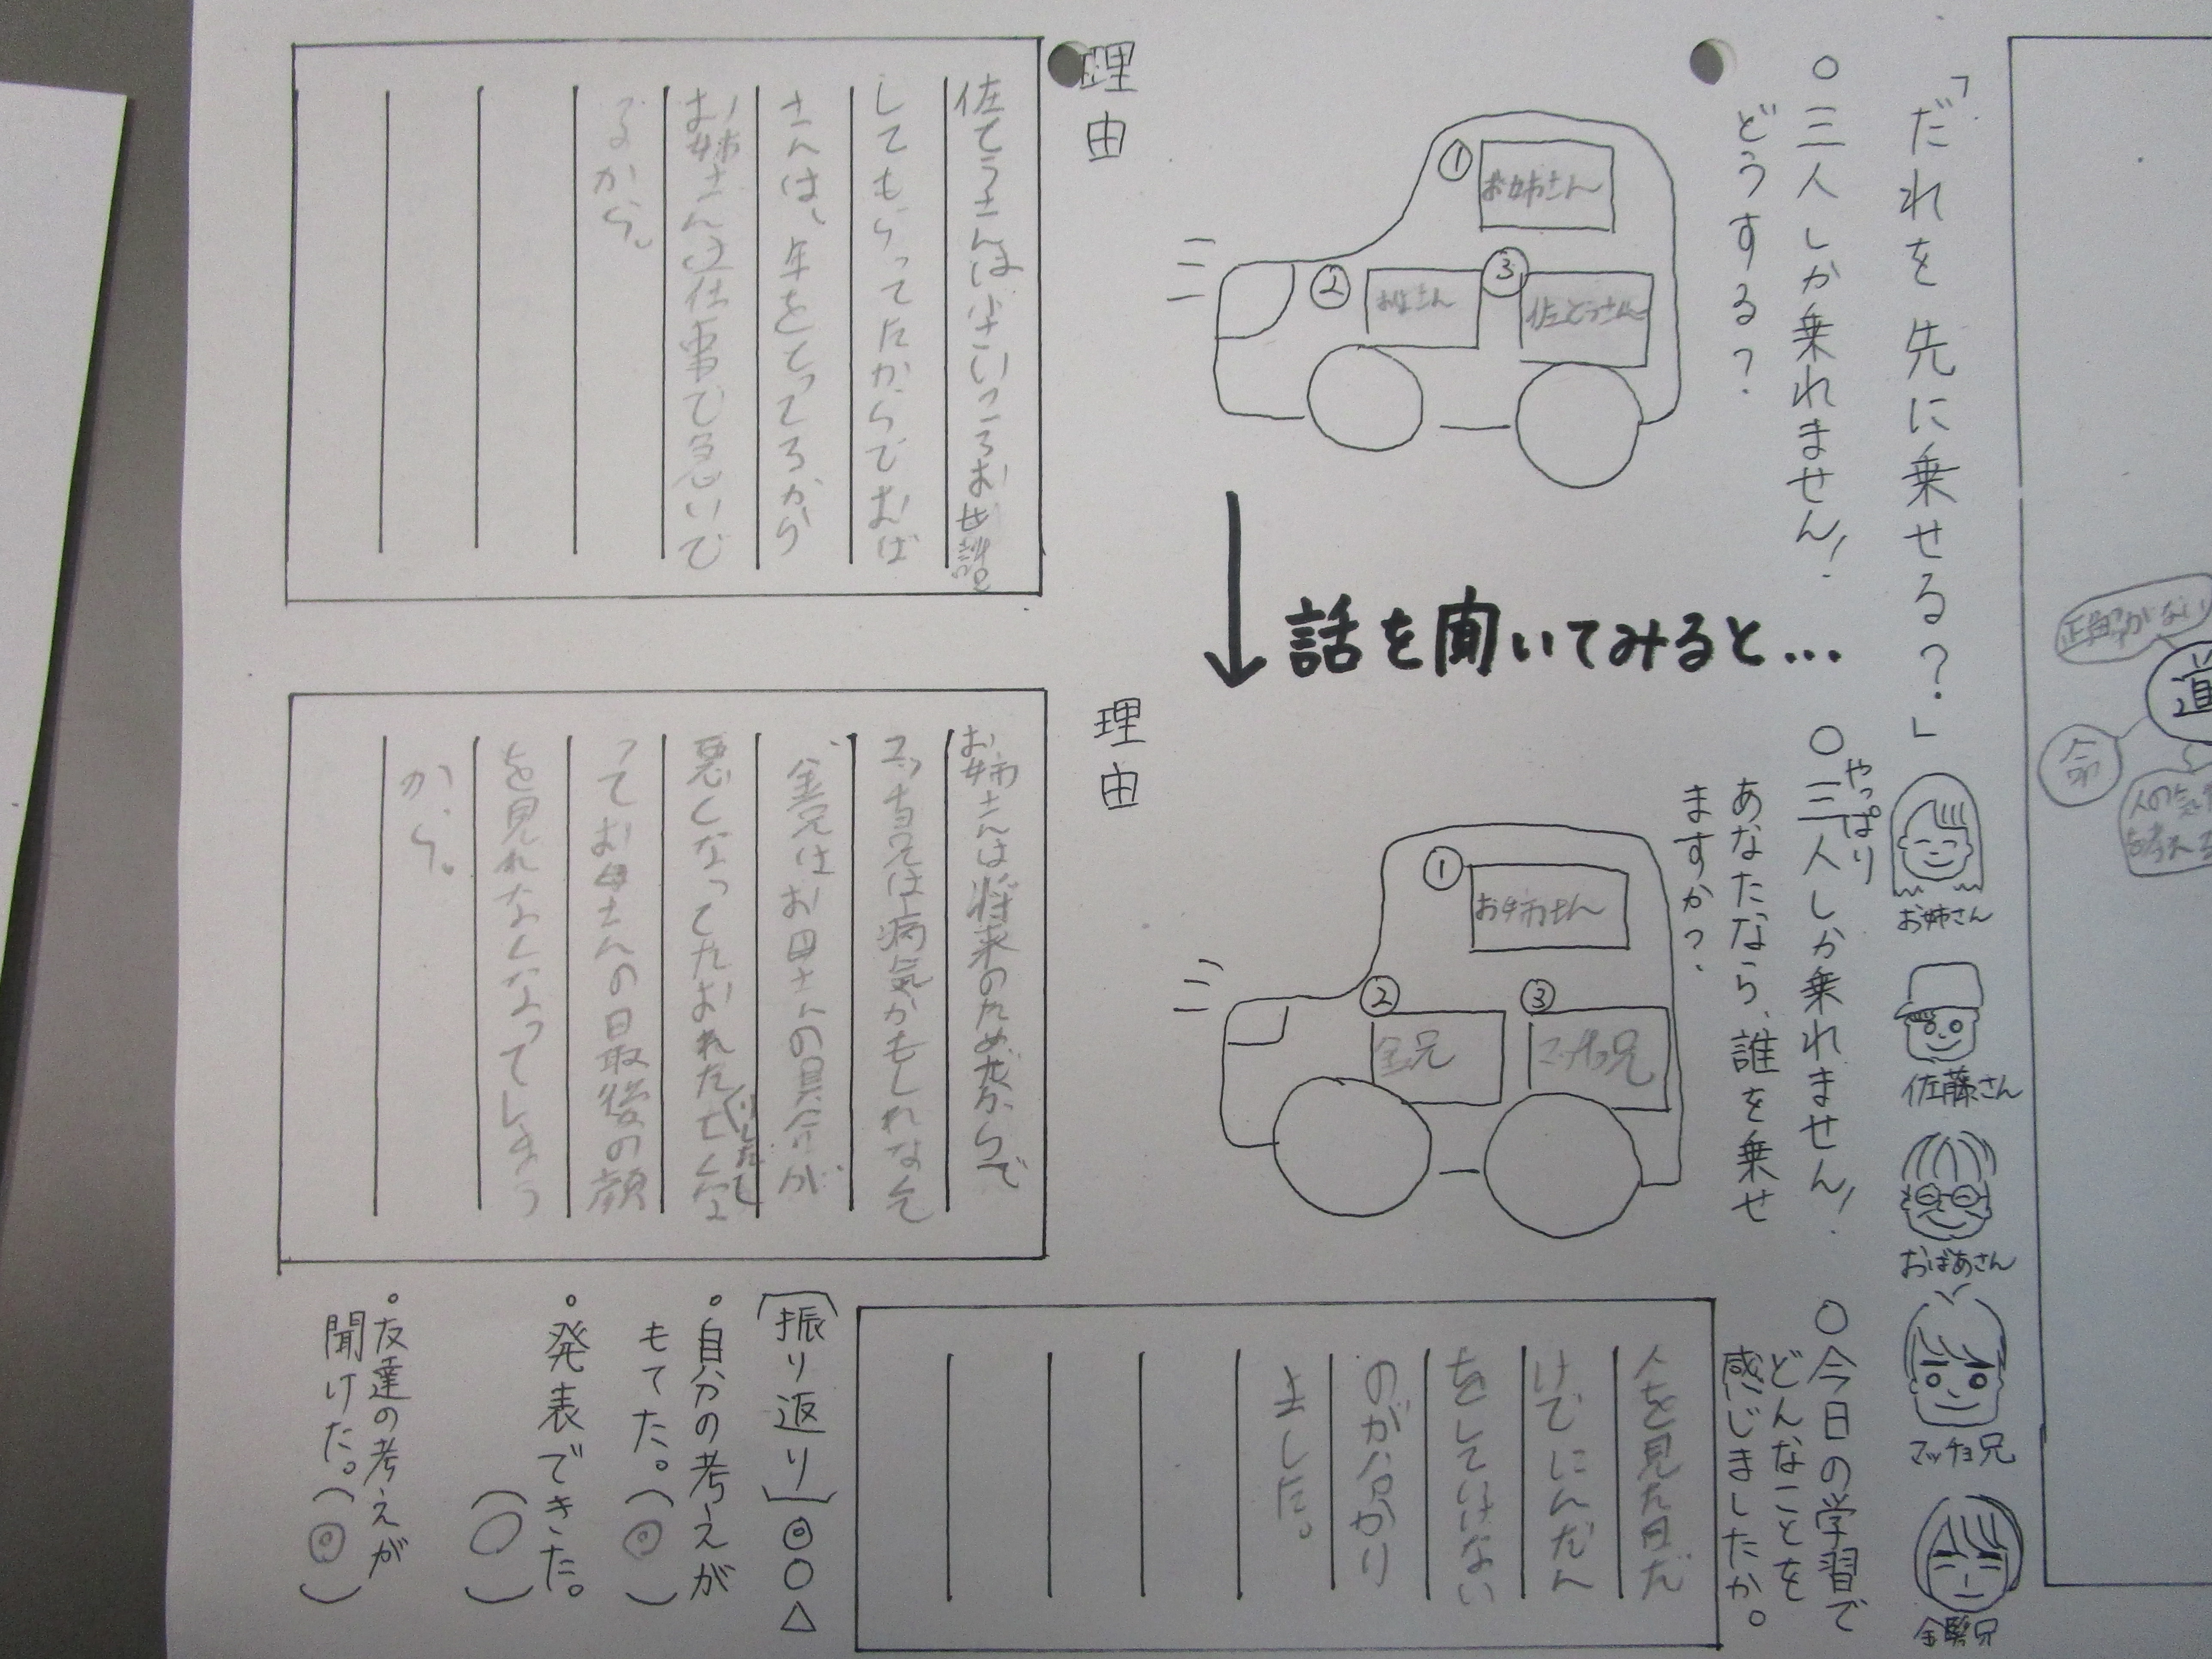 「だれを先に乗せる？」
お姉さん
佐藤さん
おばあさん
マッチョ兄
金髪兄
○三人しか乗れません！
どうする？
①
お姉さん
②
③
佐とうさん
理由
佐とうさんは小さいころお世話を
してもらってたからでおば
さんは、年をとってるから
お姉さんは仕事で急いで
るから。
話を聞いてみると…
○やっぱり三人しか乗れません！
あなたなら、誰を乗せ
ますか？
①
お姉さん
②
金兄
③
マッチョ兄
理由
お姉さんは将来のためだからで
マッチョ兄は病気かもしれなくて
金兄はお母さんの具合が
悪くなってたおれた
てお母さんの最後の顔
を見れなくなってしまう
から。
○今日の学習で
どんなことを
感じましたか。
人を見た目だ
けでにんだん
をしていけない
のが分かり
ました。
［振り返り］◎○△
・自分の考えが
もてた。（◎）
・発表できた。
（○）
・友達の考えが
聞けた。（◎）
正解がない
道
命